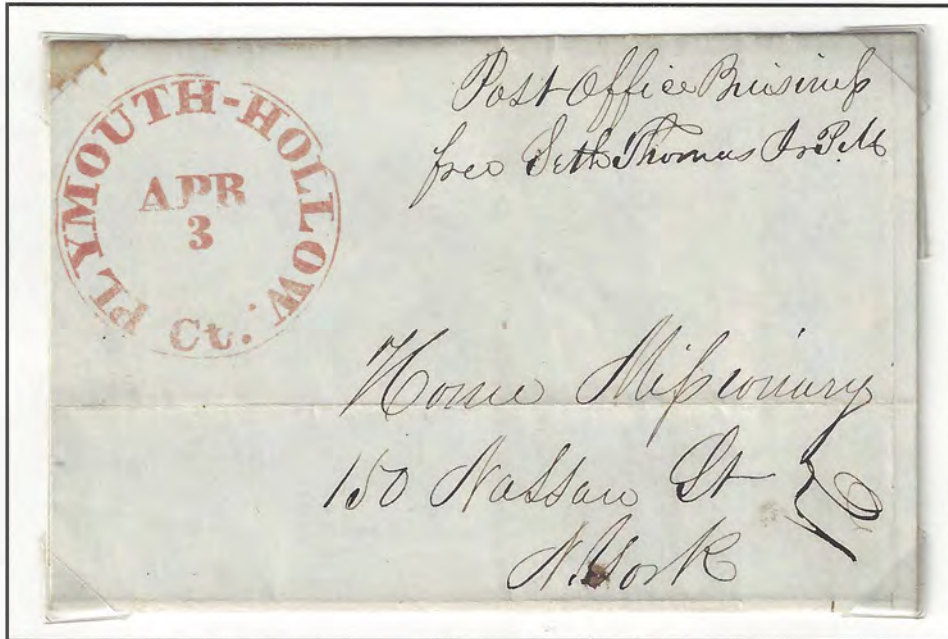 PLYMOUTH-HOLLOW
APR
3
Ct.
Post Office Business
free Seth Thomas Jr P.M
Home Missionary
150 Nassau St
N. York